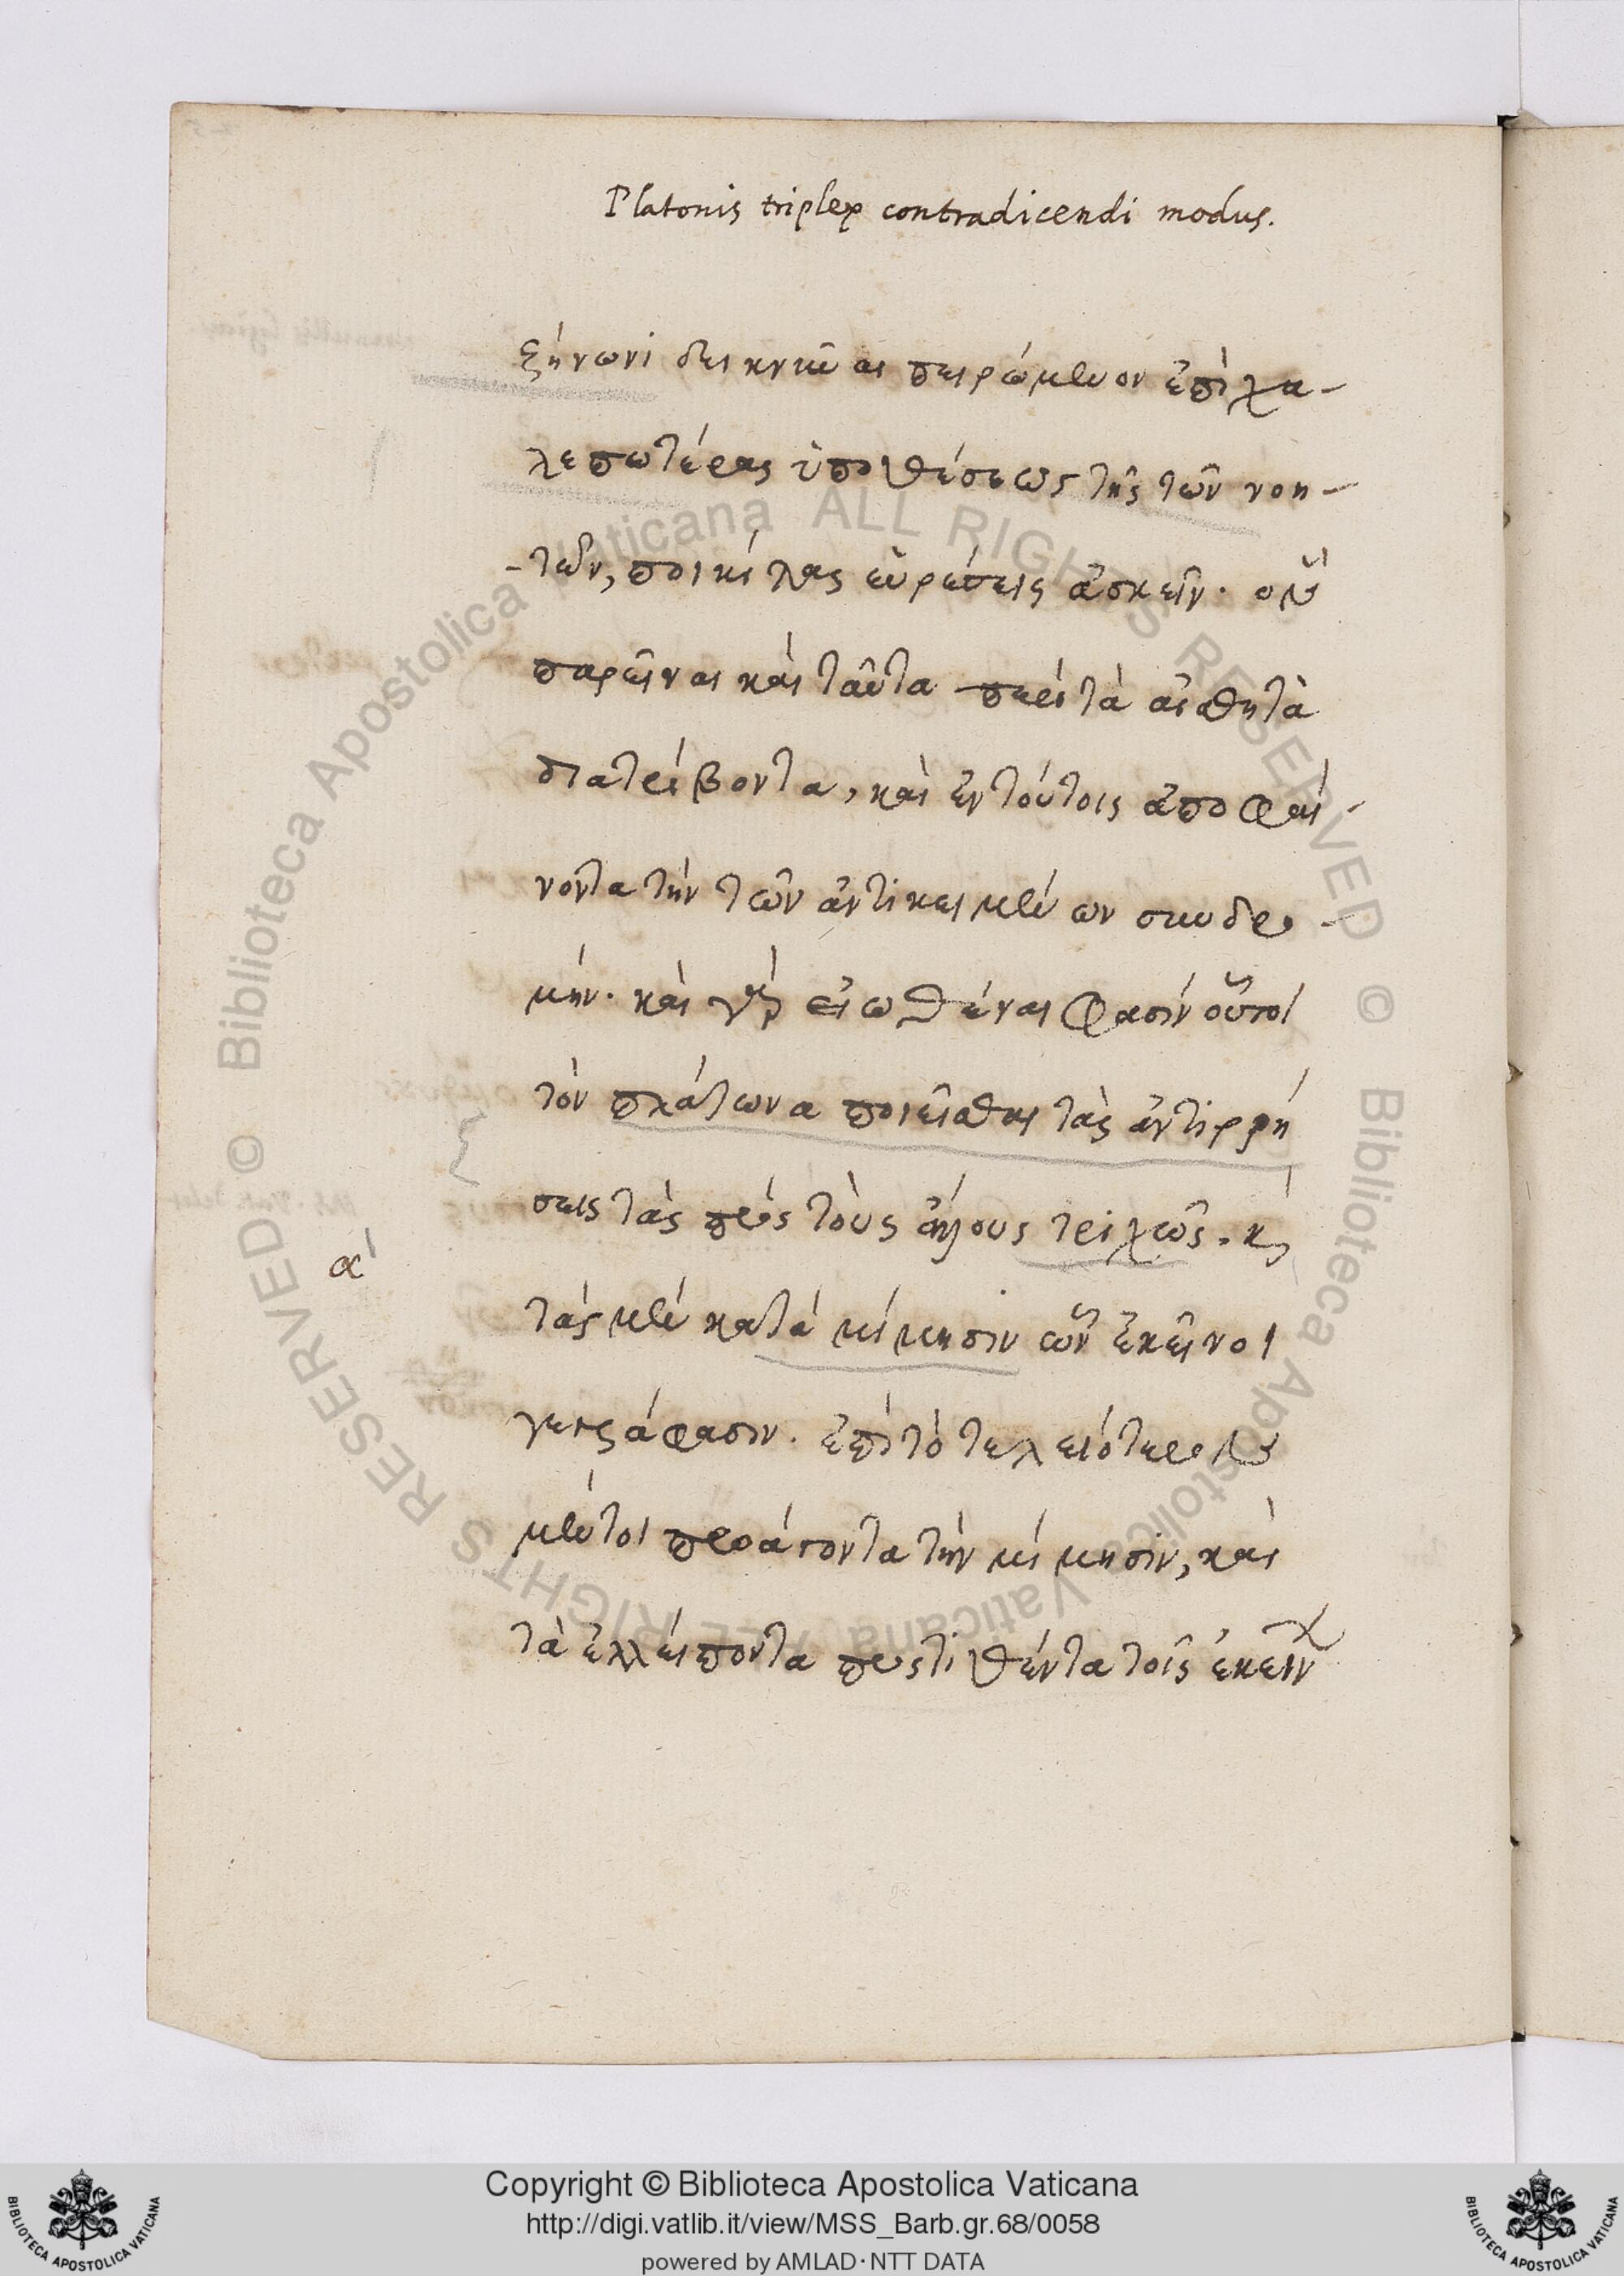 Platonis triplex contradicendi modus.
ζήνωνι δεικνύναι πειρώμενον ἐπὶ χα-
λεπωτέρας ὑποθέσεως τῆς τῶν νοη-
-τῶν, ποικίλας εὑρέσεις ἀσκεῖν. ὃν
παρεῖναι καὶ ταῦτα περὶ τὰ αἰσθητὰ
διατρίβοντα, καὶ ἐν τούτοις ἀποφαί-
νοντα τὴν τῶν ἀντικειμένων συνδρο-
μήν. καὶ γὰρ εἰωθέναι φασὶν οὗτοι
τὸν πλάτωνα ποιεῖσθαι τὰς ἀντιρρή
σεις τὰς πρὸς τοὺς ἄλλους τριχῶς. κὶ
τὰς μὲν κατὰ μίμησιν ὧν ἐκεῖνοι
γεγράφασιν. ἐπὶ τὸ τελειότερον
μέντοι προάγοντα τὴν μίμησιν, καὶ
τὰ ἐλλείποντα προστιθέντα τοῖς ἐκείν
α'
Biblioteca Apostolica Vaticana ALL RIGHTS RESERVED ©
Biblioteca Apostolica Vaticana ALL RIGHTS RESERVED ©
Copyright © Biblioteca Apostolica Vaticana
http://digi.vatlib.it/view/MSS_Barb.gr.68/0058
powered by AMLAD·NTT DATA
BIBLIOTECA APOSTOLICA VATICANA
BIBLIOTECA APOSTOLICA VATICANA